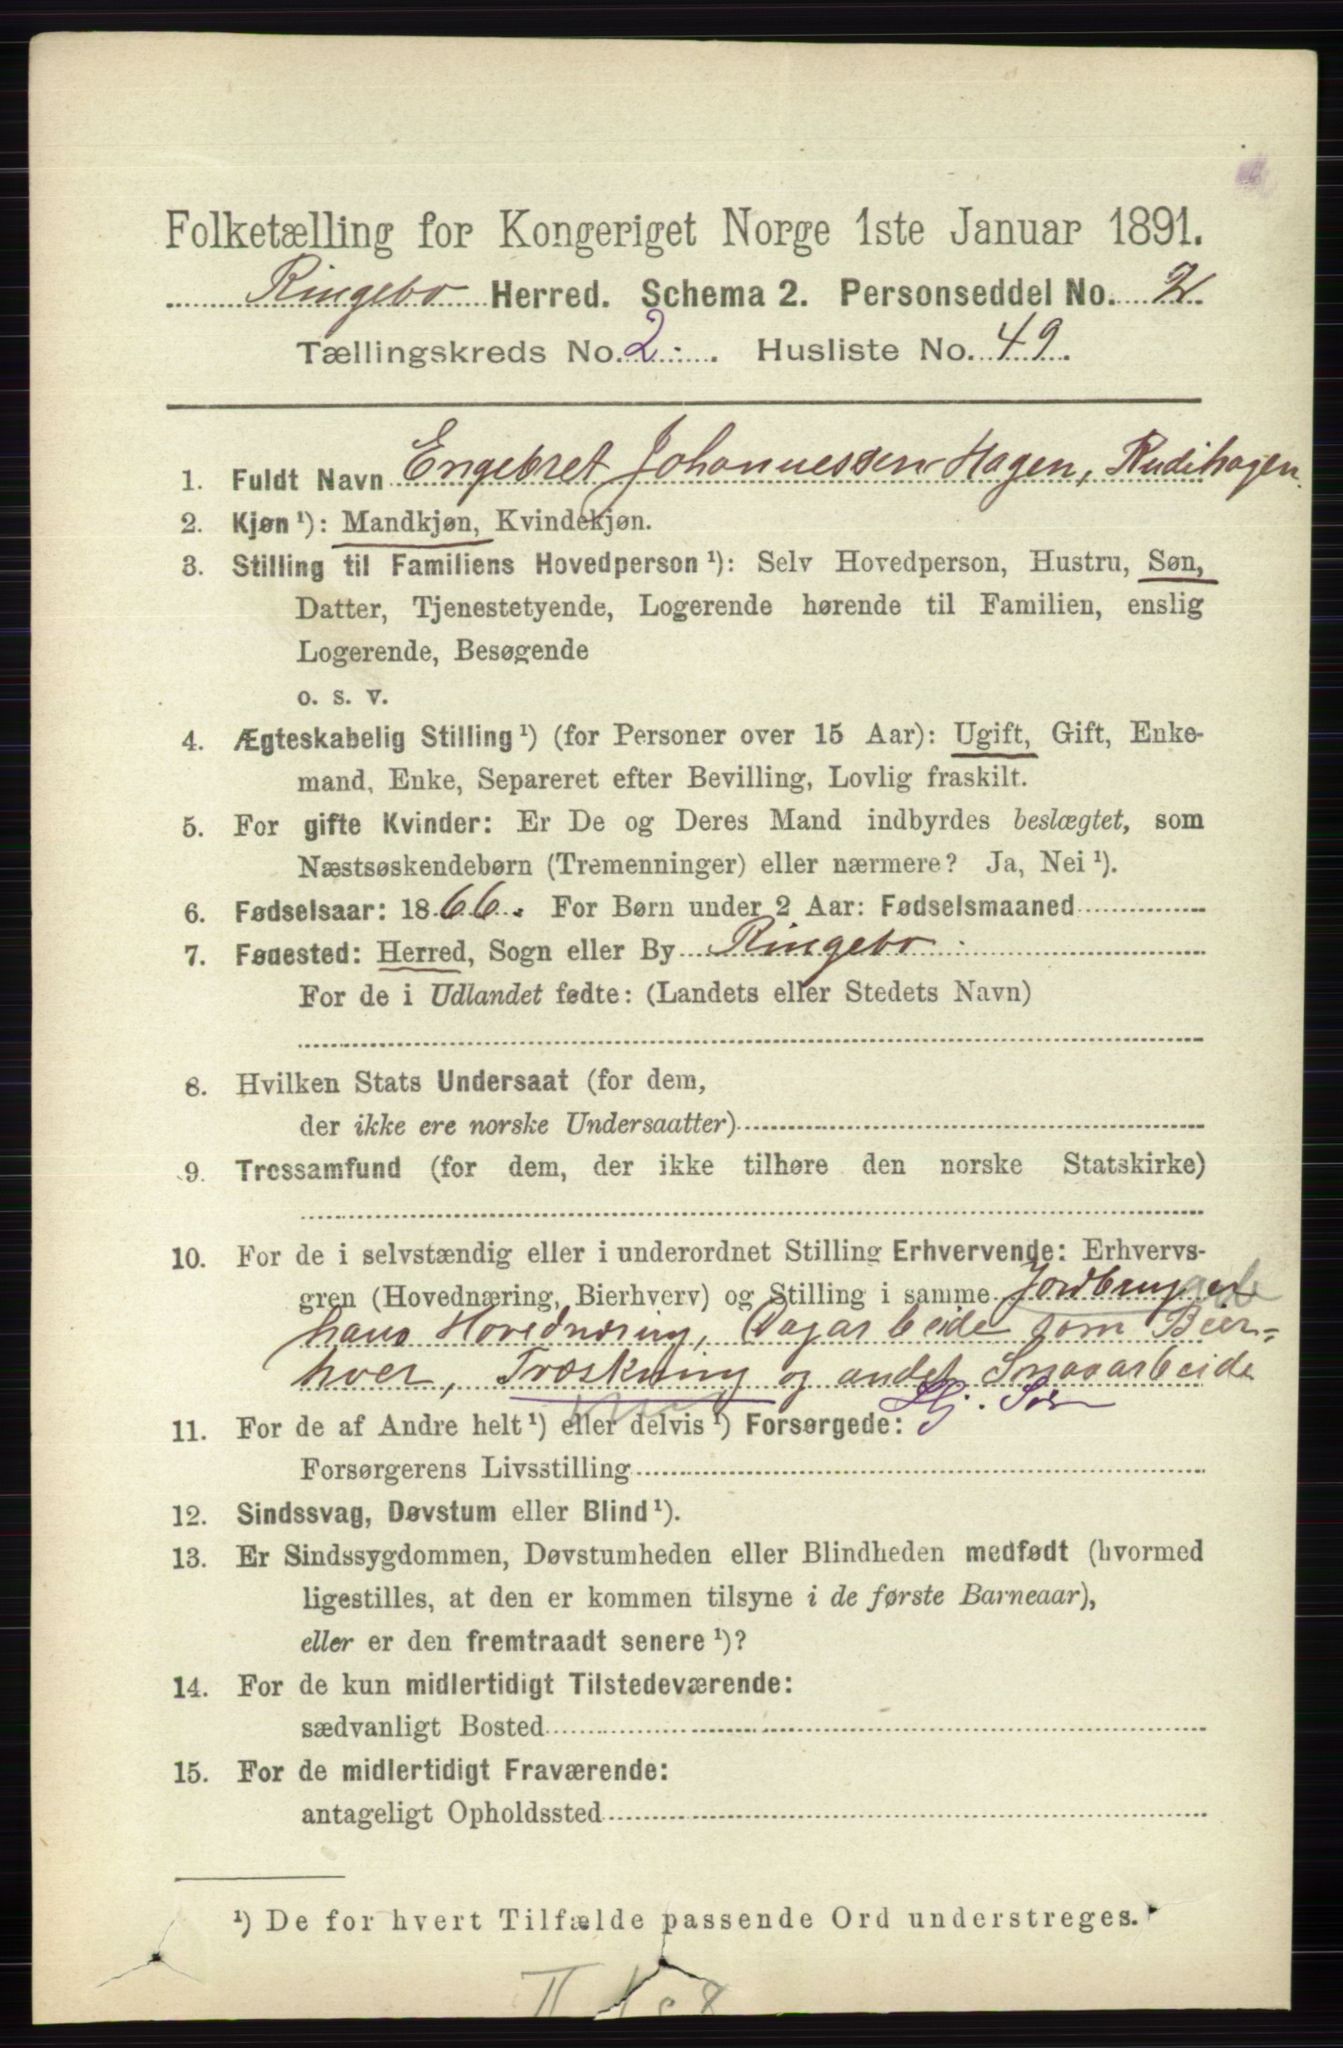 Folketælling for Kongeriget Norge 1ste Januar 1891.
Ringebo Herred. Schema 2. Personseddel No. 2.
Tællingskreds No. 2. Husliste No. 49.
1. Fuldt Navn Engebret Johannessen Hagen, Rudihagen.
2. Kjøn ¹): Mandkjøn, Kvindekjøn.
3. Stilling til Familiens Hovedperson ¹): Selv Hovedperson, Hustru, Søn,
Datter, Tjenestetyende, Logerende hørende til Familien, enslig
Logerende, Besøgende
o. s. v.
4. Ægteskabelig Stilling ¹) (for Personer over 15 Aar): Ugift, Gift, Enke-
mand, Enke, Separeret efter Bevilling, Lovlig fraskilt.
5. For gifte Kvinder: Er De og Deres Mand indbyrdes beslægtet, som
Næstsøskendebørn (Tremenninger) eller nærmere? Ja, Nei ¹).
6. Fødselsaar: 1866. For Børn under 2 Aar: Fødselsmaaned
7. Fødested: Herred, Sogn eller By Ringebo
For de i Udlandet fødte: (Landets eller Stedets Navn)
8. Hvilken Stats Undersaat (for dem,
der ikke ere norske Undersaatter)
9. Trossamfund (for dem, der ikke tilhøre den norske Statskirke)
10. For de i selvstændig eller i underordnet Stilling Erhvervende: Erhvervs-
gren (Hovednæring, Bierhverv) og Stilling i samme Jordbruget
hans Hovednæring, Dagarbeide som Bier-
hver, Træskning og andet Smaaarbeide
11. For de af Andre helt ¹) eller delvis ¹) Forsørgede: Hj. Søn
Forsørgerens Livsstilling
12. Sindssvag, Døvstum eller Blind ¹).
13. Er Sindssygdommen, Døvstumheden eller Blindheden medfødt (hvormed
ligestilles, at den er kommen tilsyne i de første Barneaar),
eller er den fremtraadt senere ¹)?
14. For de kun midlertidigt Tilstedeværende:
sædvanligt Bosted
15. For de midlertidigt Fraværende:
antageligt Opholdssted
¹) De for hvert Tilfælde passende Ord understreges.